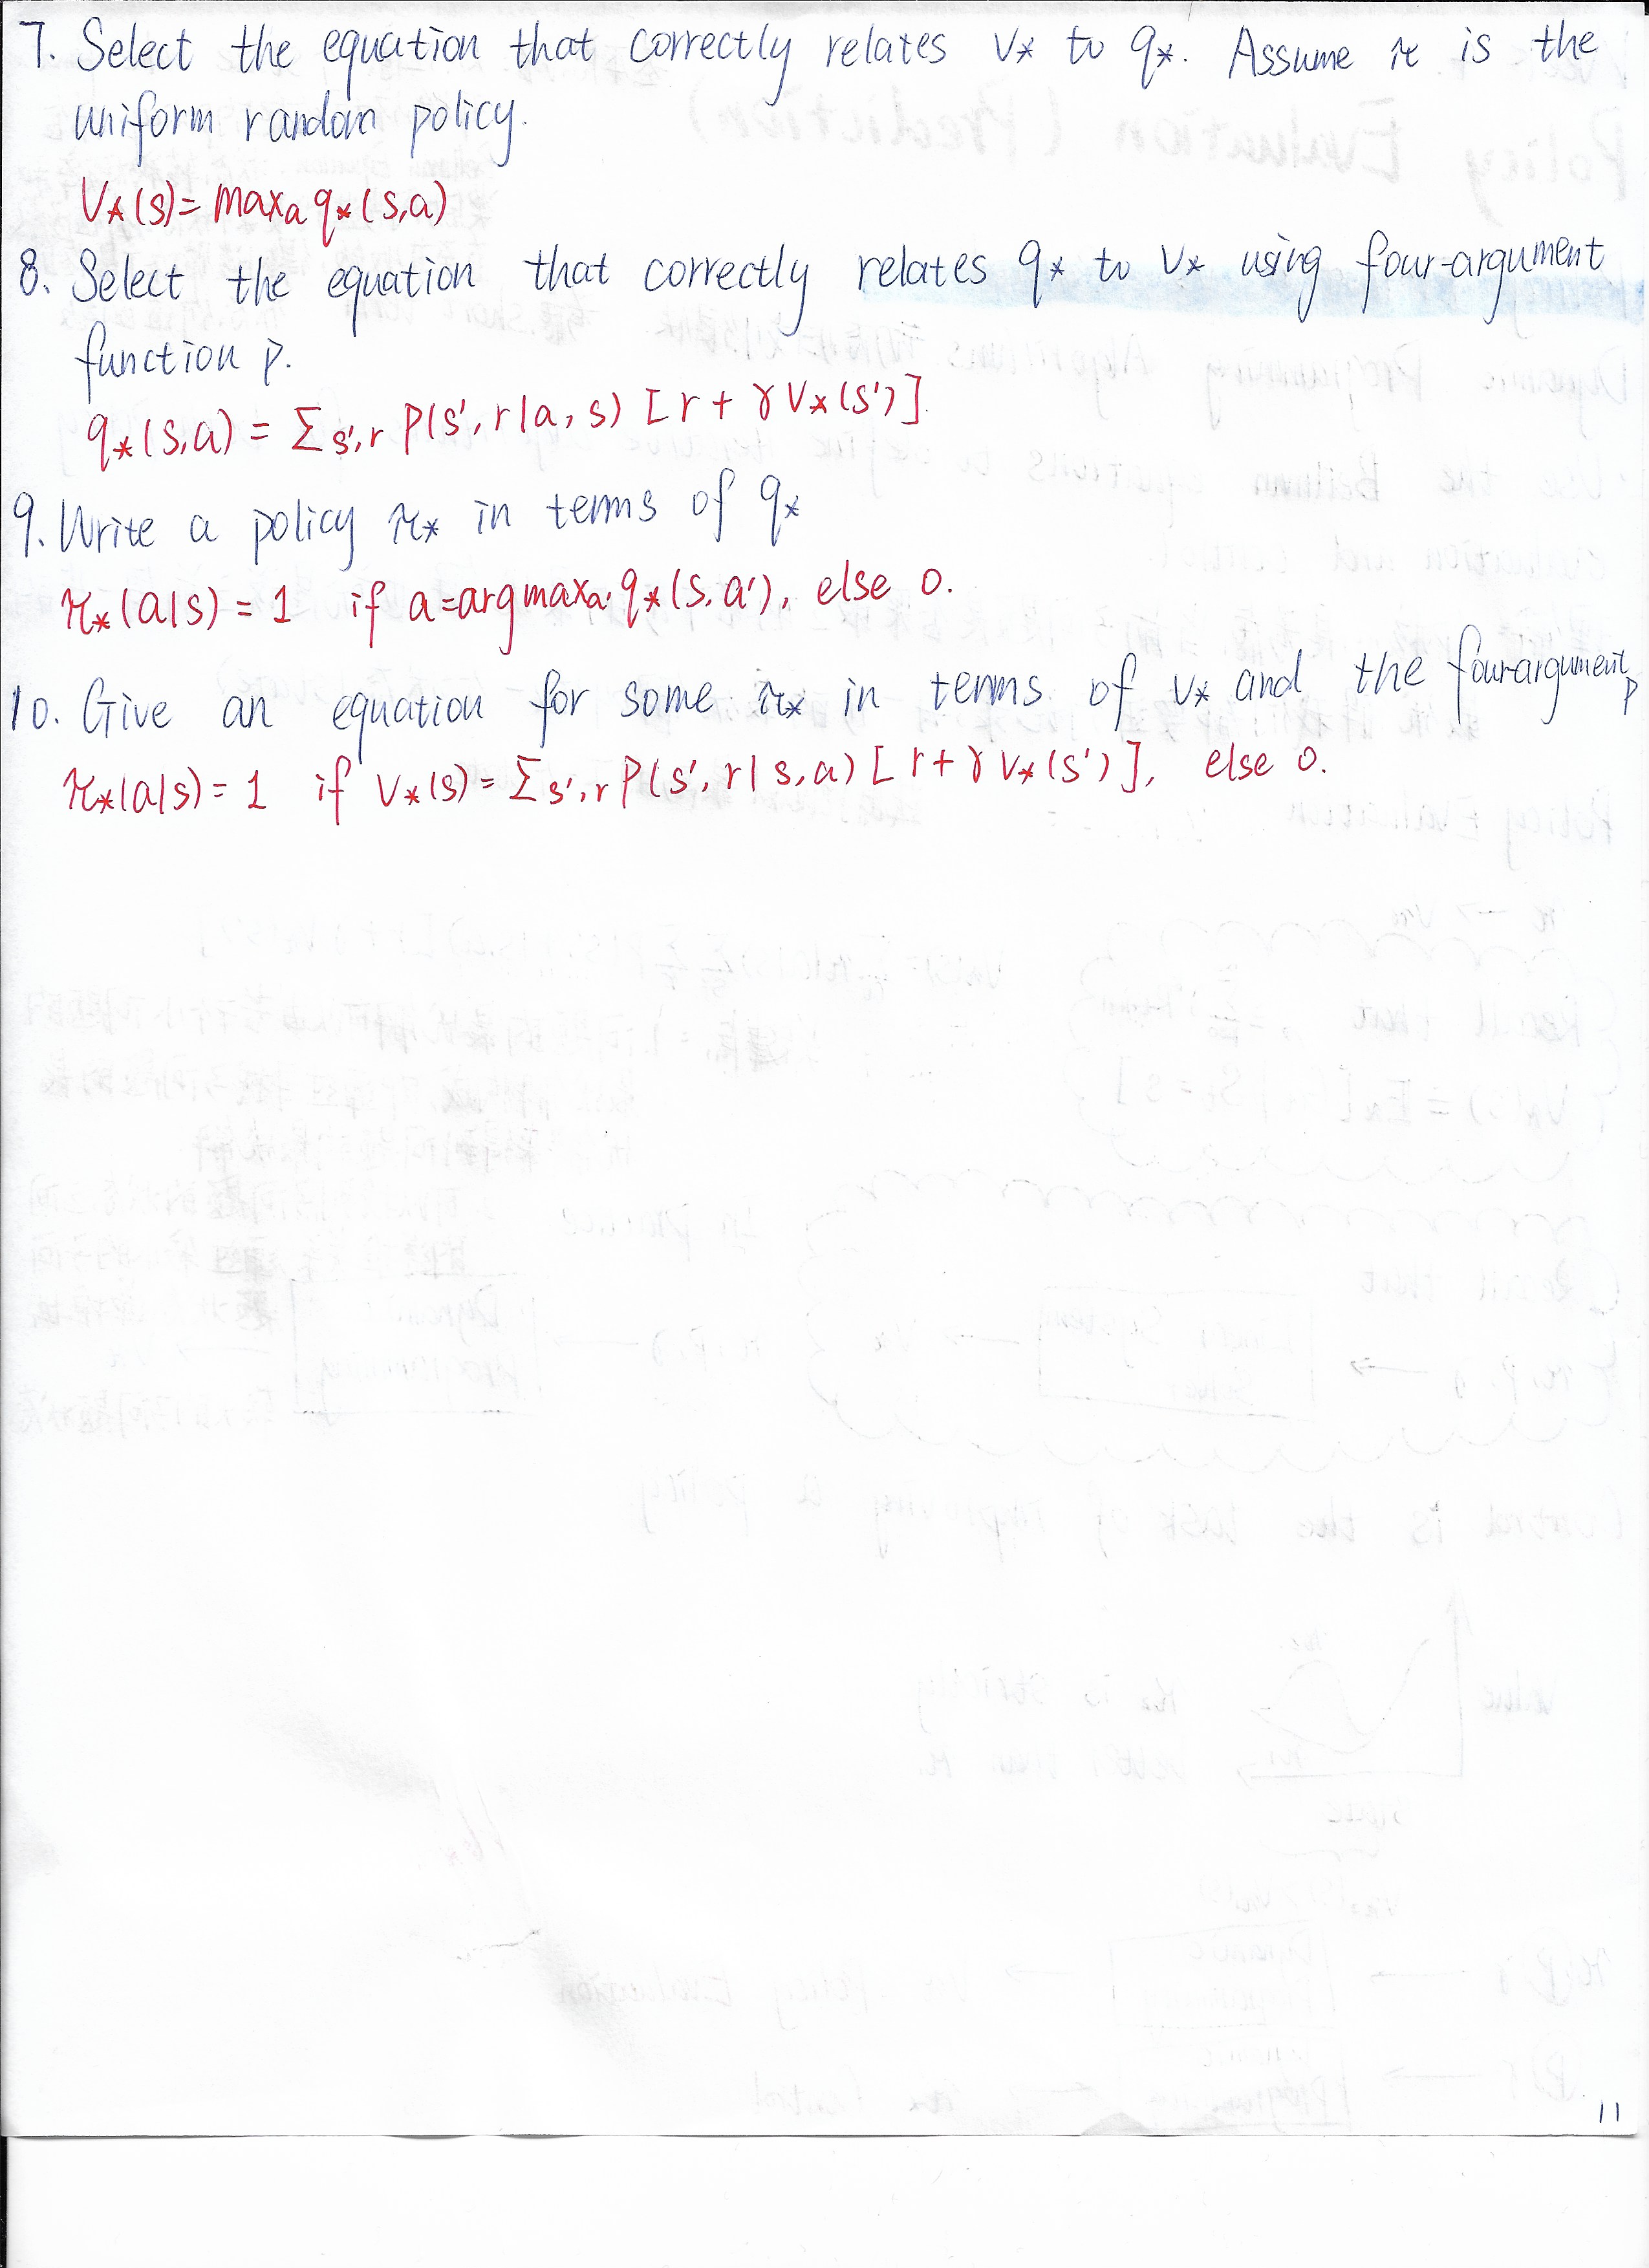 7. Select the equation that correctly relates v* to q*. Assume π is the
uniform random policy.
V*(s)= maxₐ q*(s,a)
8. Select the equation that correctly relates q* to v* using four-argument
function p.
q*(s,a) = Σs',r P(s',r|a,s) [r + γ V*(s')].
9. Write a policy π* in terms of q*
π*(a|s) = 1 if a=argmaxa' q*(s,a'), else 0.
10. Give an equation for some π* in terms of v* and the four-argument p
π*(a|s) = 1 if v*(s) = Σs',r P(s',r|s,a) [r+γ v*(s')], else 0.
11